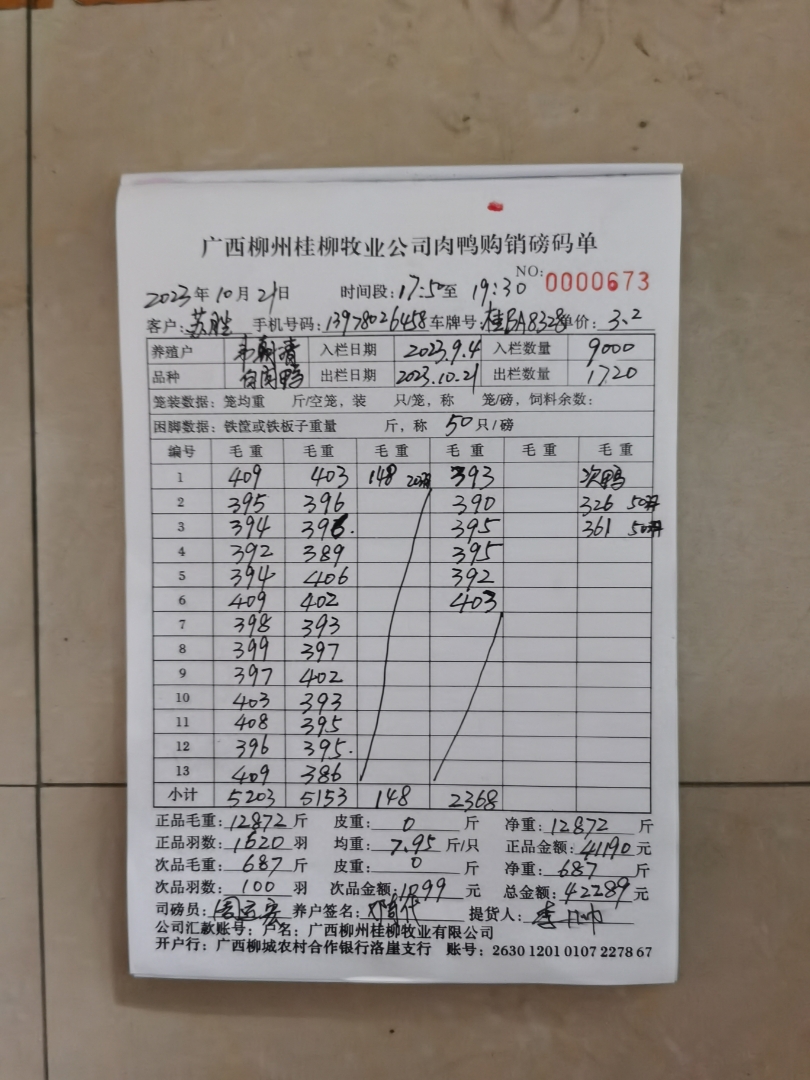 广西柳州桂柳牧业公司肉鸭购销磅码单
NO: 0000673
2023年10月21日 时间段:17:50至 19:30
客户:苏胜 手机号码:13978026458 车牌号:桂BA8328 单价:3.2
养殖户 韦朝清 入栏日期 2023.9.4 入栏数量 9000
品种 白肉鸭 出栏日期 2023.10.21 出栏数量 1720
笼装数据:笼均重 斤/空笼,装 只/笼,称 笼/磅,饲料余数:
困脚数据:铁筐或铁板子重量 斤,称 50 只/磅
编号 毛重 毛重 毛重 毛重 毛重 毛重
1 409 403 148 20羽 393 次鸭
2 395 396 390 326 50羽
3 394 396. 395 361 50羽
4 392 389 395
5 394 406 392
6 409 402 403
7 398 393
8 399 397
9 397 402
10 403 393
11 408 395
12 396 395.
13 409 386
小计 5203 5153 148 2368
正品毛重:12872斤 皮重:0斤 净重:12872斤
正品羽数:1620羽 均重:7.95斤/只 正品金额:41190元
次品毛重:687斤 皮重:0斤 净重:687斤
次品羽数:100羽 次品金额:1099元 总金额:42289元
司磅员: 养户签名: 提货人:李
公司汇款账号:户名:广西柳州桂柳牧业有限公司
开户行:广西柳城农村合作银行洛崖支行 账号:2630 1201 0107 2278 67